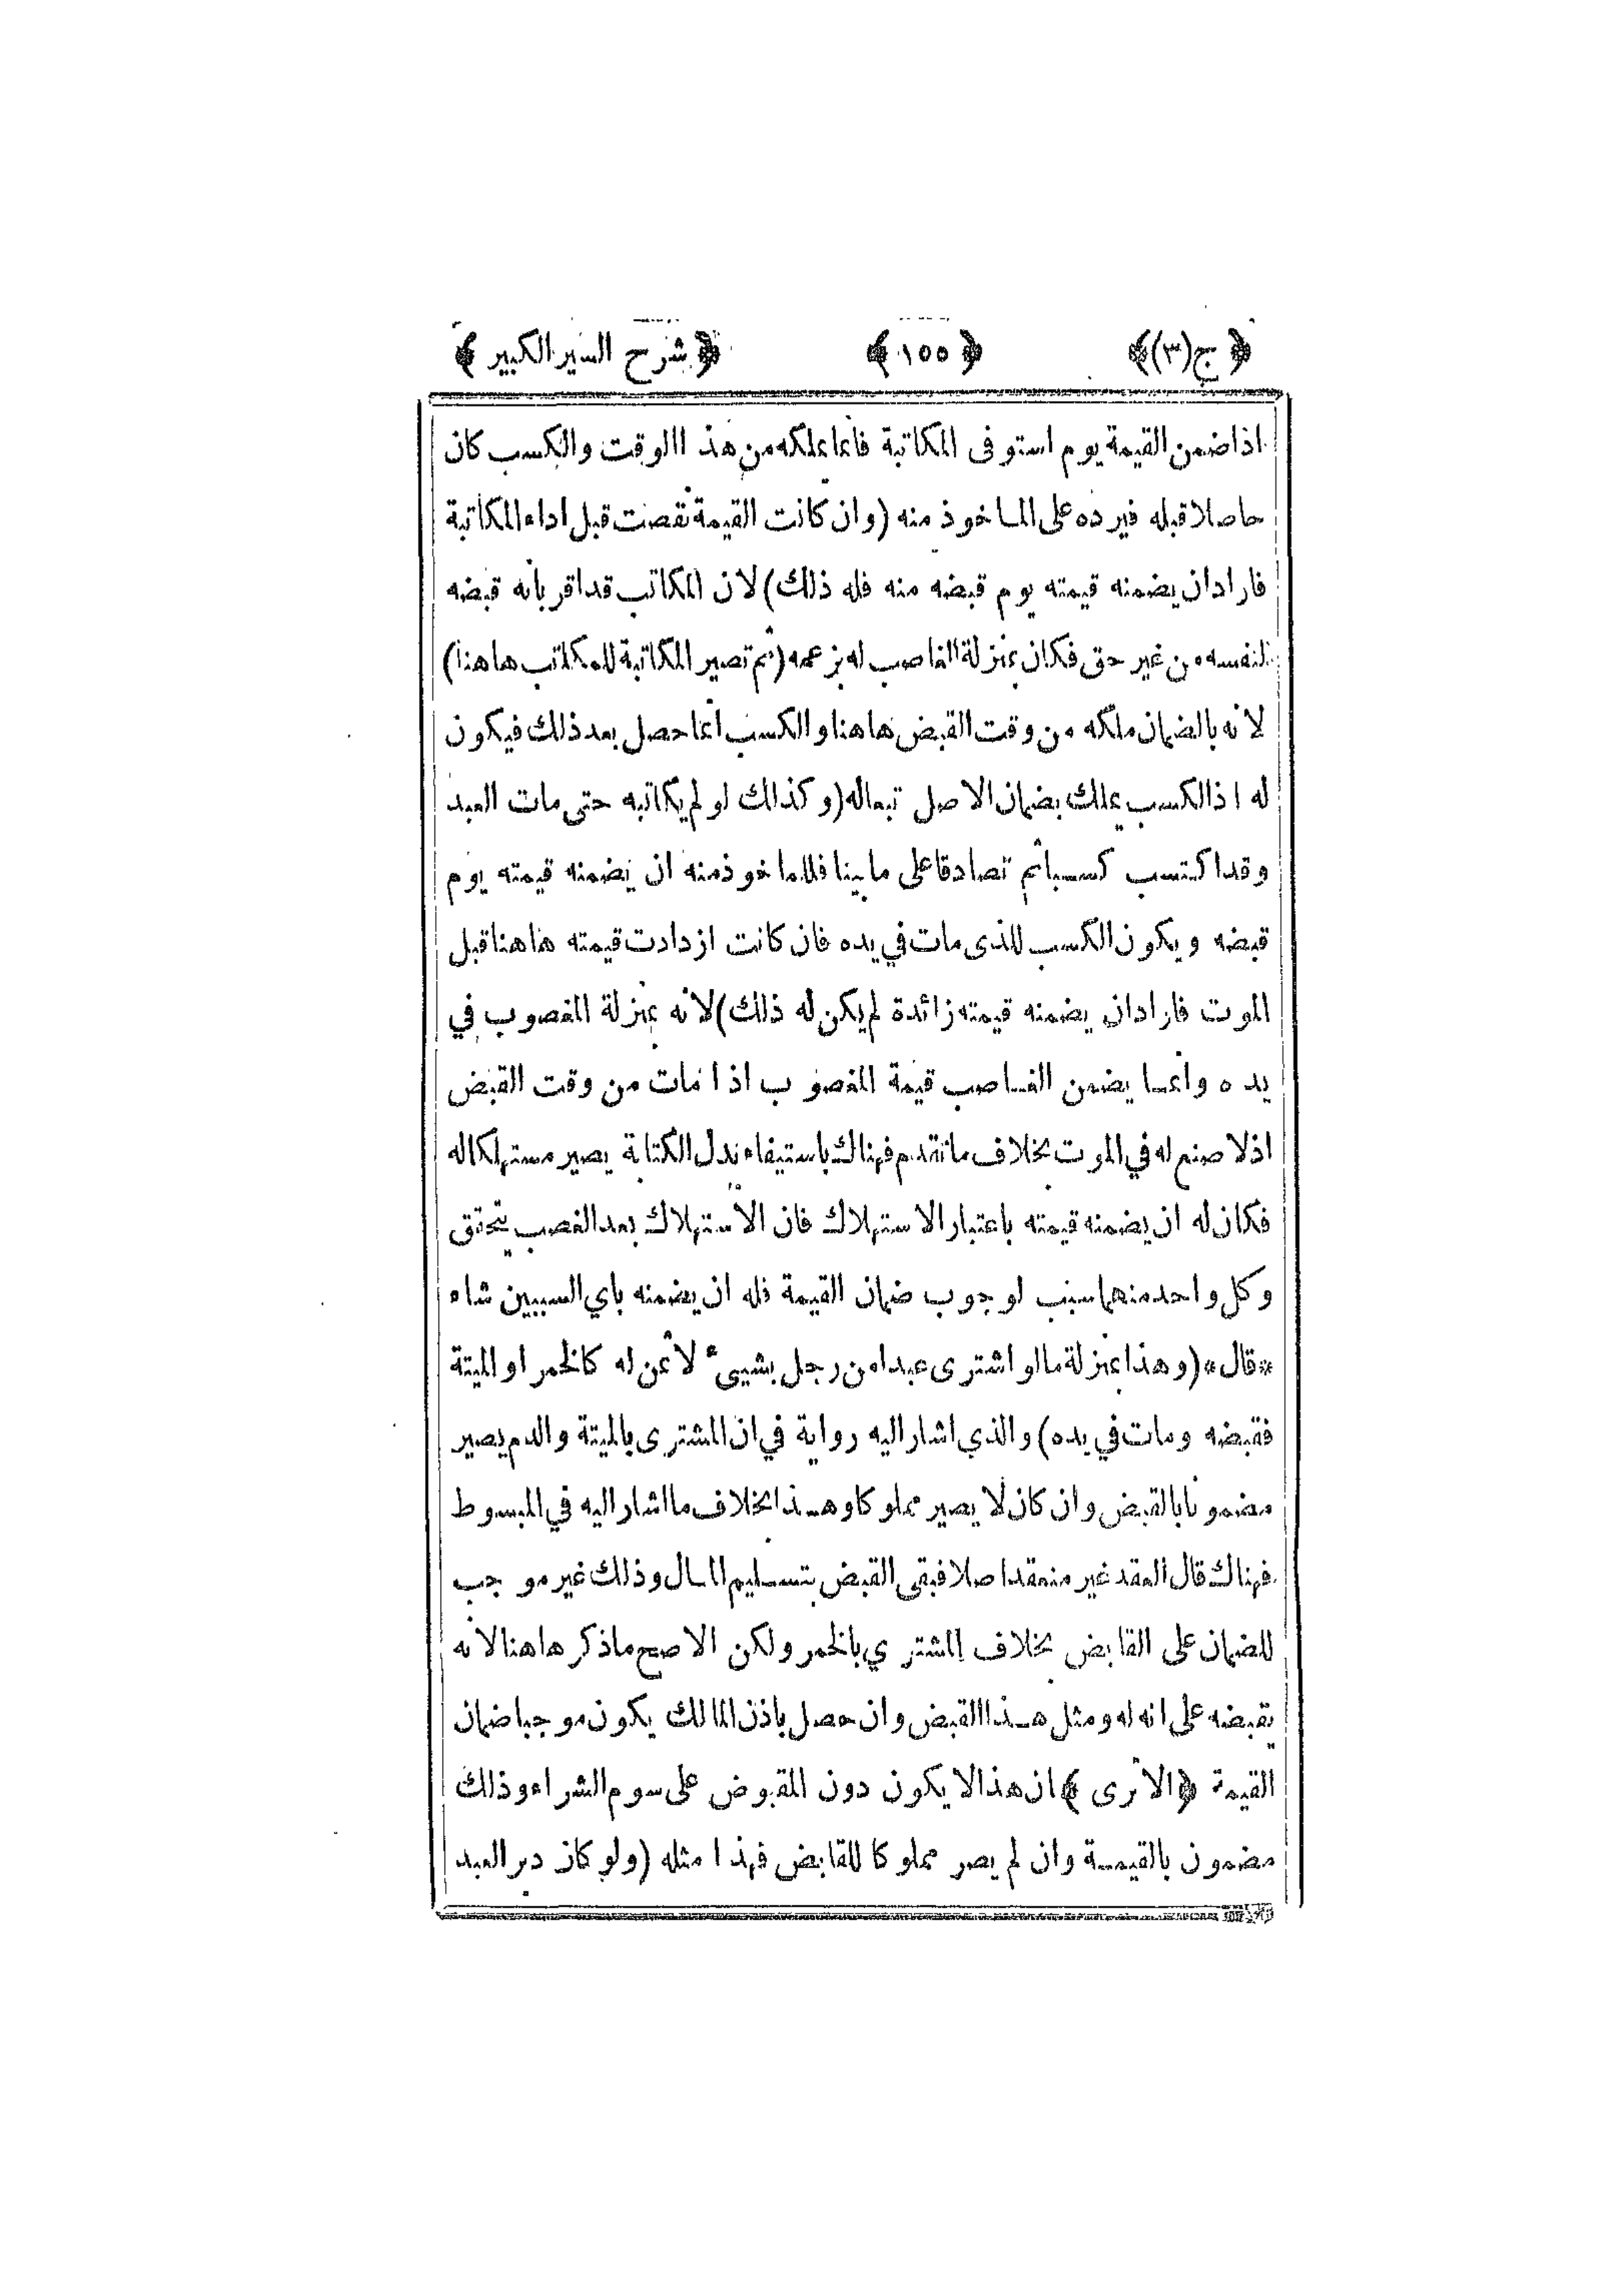 ﴿ ج(٣)﴾ ﴿ ١٥٥ ﴾ ﴿ شرح السير الكبير ﴾
اذا ضمن القيمة يوم استوفى المكاتبة فانما يملكه من هذا الوقت والكسب كان
حاصلا قبله فيرده على الماخوذ منه (وان كانت القيمة نقصت قبل اداء المكاتبة
فاراد ان يضمنه قيمته يوم قبضه منه فله ذلك) لان المكاتب قد اقر بانه قبضه
لنفسه من غير حق فكان بمنزلة الغاصب له بزعمه (ثم تصير المكاتبة للمكاتب هاهنا)
لانه بالضمان ملكه من وقت القبض هاهنا والكسب انما حصل بعد ذلك فيكون
له اذ الكسب يملك بضمان الاصل تبعا له (وكذلك لو لم يكاتبه حتى مات العبد
وقد اكتسب كسبا ثم تصادقا على ما بينا فللماخوذ منه ان يضمنه قيمته يوم
قبضه ويكون الكسب للذى مات في يده فان كانت ازدادت قيمته هاهنا قبل
الموت فاراد ان يضمنه قيمته زائدة لم يكن له ذلك) لانه بمنزلة المغصوب في
يده وانما يضمن الغاصب قيمة المغصوب اذا مات من وقت القبض
اذ لا صنع له في الموت بخلاف ما تقدم فهناك باستيفاء بدل الكتابة يصير مستهلكا له
فكان له ان يضمنه قيمته باعتبار الاستهلاك فان الاستهلاك بعد الغصب يتحقق
وكل واحد منهما سبب لوجوب ضمان القيمة فله ان يضمنه باي السببين شاء
*قال* (وهذا بمنزلة ما لو اشترى عبدا من رجل بشيىء لا ثمن له كالخمر او الميتة
فقبضه ومات في يده) والذي اشار اليه رواية في ان المشترى بالميتة والدم يصير
مضمونا بالقبض وان كان لا يصير مملوكا وهذا بخلاف ما اشار اليه في المبسوط
فهناك قال العقد غير منعقد اصلا فبقى القبض بتسليم المال وذلك غير موجب
للضمان على القابض بخلاف المشتري بالخمر ولكن الاصح ما ذكر هاهنا لانه
يقبضه على انه له ومثل هذا القبض وان حصل باذن المالك يكون موجبا ضمان
القيمة ﴿ الا ترى ﴾ ان هذا لا يكون دون المقبوض على سوم الشراء وذلك
مضمون بالقيمة وان لم يصر مملوكا للقابض فهذا مثله (ولو كان دبر العبد